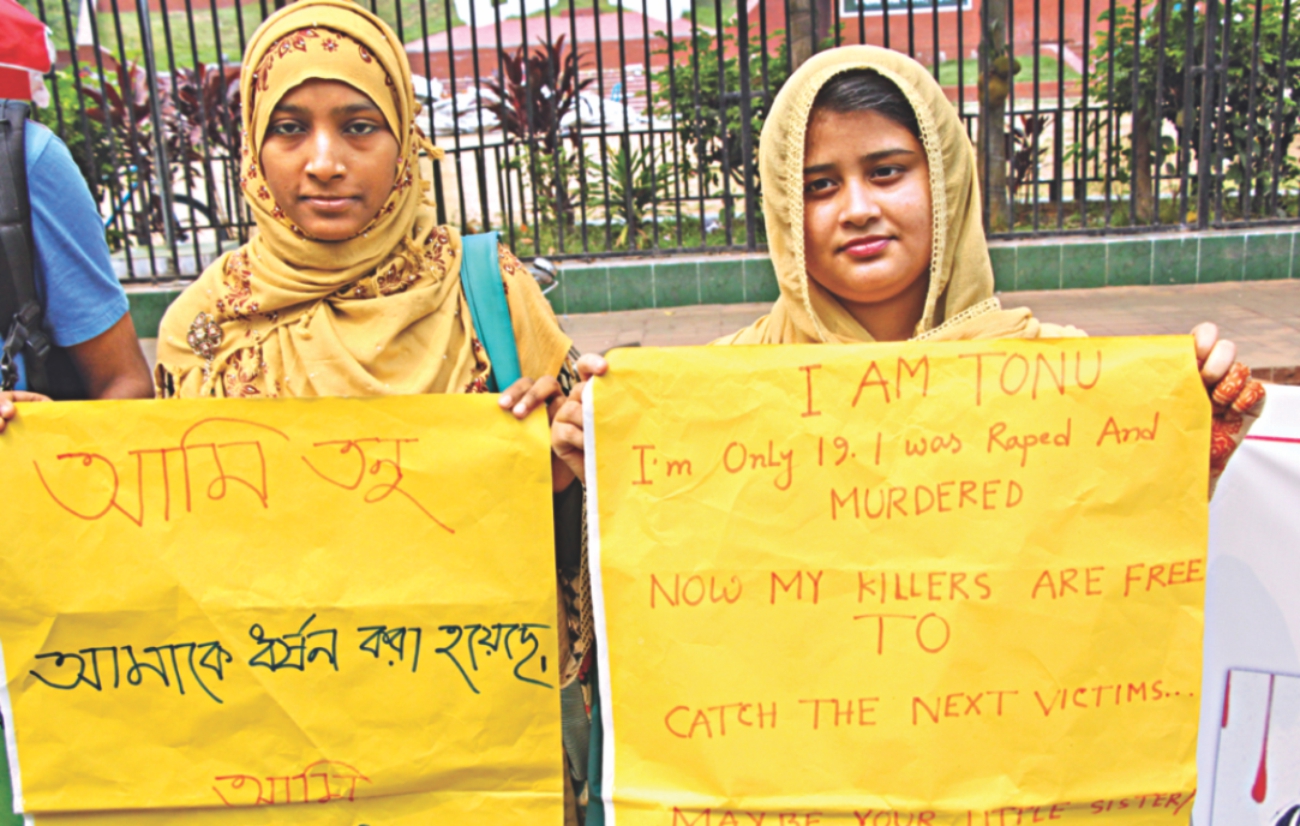 আমি তনু
আমাকে ধর্ষন করা হয়েছে.
আমি
I AM TONU
I'm Only 19. I was Raped And
MURDERED
NOW MY KILLERS ARE FREE
TO
CATCH THE NEXT VICTIMS...
MAYBE YOUR LITTLE SISTER/